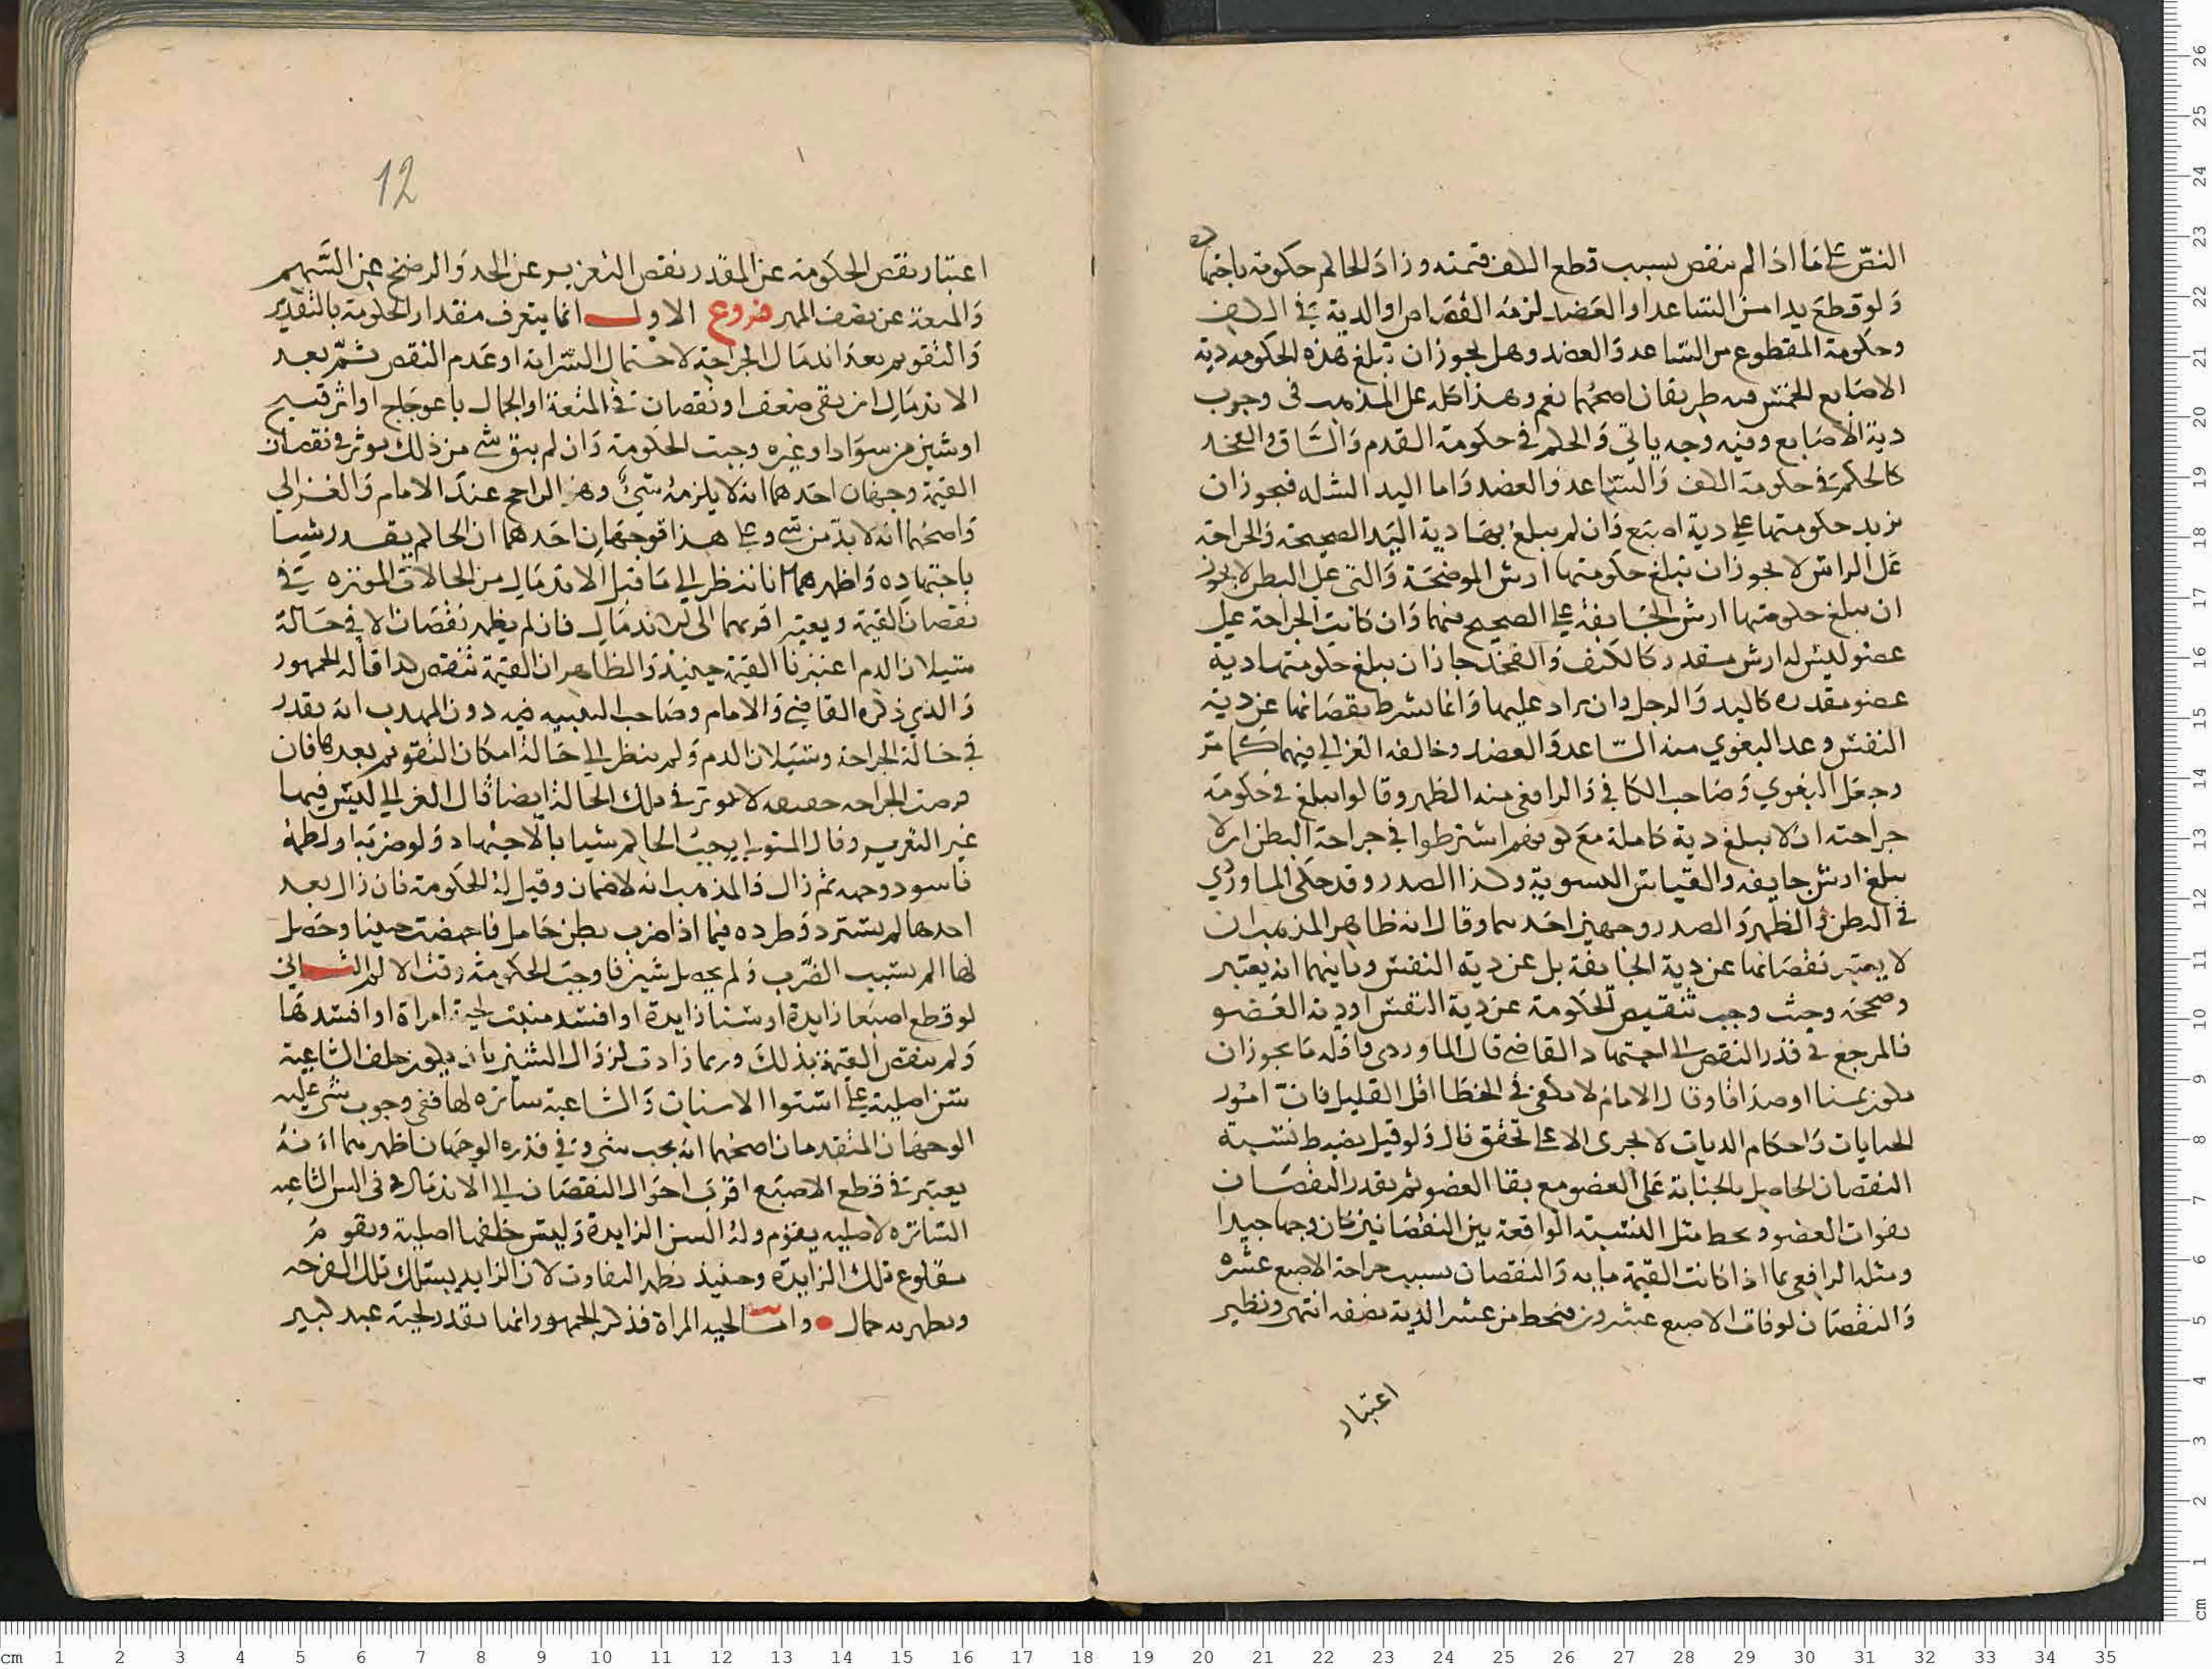 النص على ما اذا لم تنقص بسبب قطع الكف قيمته وزاد الحاكم حكومة باجتهاده
ولو قطع يدا من الساعد او العضد لزمه القصاص او الدية في الكف
وحكومة المقطوع من الساعد والعضد وهل يجوز ان تبلغ هذه الحكومة دية
الاصابع الخمس فيه طريقان اصحهما نعم وهذا كله على المذهب في وجوب
دية الاصابع وفيه وجه ياتي والحكم في حكومة القدم والساق والفخذ
كالحكم في حكومة الكف والساعد والعضد واما اليد الشلا فيجوز ان
يزيد حكومتها على دية اصبع وان لم يبلغ بها دية اليد الصحيحة والجراحة
على الراس لا يجوز ان تبلغ حكومتها ارش الموضحة والتي على البطن لا يجوز
ان يبلغ حكومتها ارش الجايفة على الصحيح منهما وان كانت الجراحة على
عضو ليس له ارش مقدر كالكتف والفخذ جاز ان يبلغ حكومتها دية
عضو مقدره كاليد والرجل وان يزاد عليها وانما يشرط نقصانها عن دية
النفس وعد البغوي منه الساعد والعضد وخالفه الغزالي فيهما كما مر
وجعل البغوي وصاحب الكافي والرافعي منه الظهر وقالوا يبلغ في حكومة
جراحته ان لا يبلغ دية كاملة مع كونهم اشترطوا في جراحة البطن ان لا
يبلغ ارش جايفه والقياس التسوية وكذا الصدر وقد حكى الماوردي
في البطن والظهر والصدر وجهين احدهما وقال انه ظاهر المذهب ان
لا يعتبر نقصانها عن دية الجايفة بل عن دية النفس وثانيهما انه يعتبر
وصححه وحيث وجب تنقيص الحكومة عن دية النفس او دية العضو
فالمرجع في قدر النقص الى اجتهاد القاضي قال الماوردي واقله ما يجوز ان
يكون ثمنا او صداقا وقال الامام لا يكفي في الخطا اقل القليل فان امور
الجنايات واحكام الديات لا تجرى الا على تحقق قال ولو قيل يضبط نسبة
النقصان الحاصل بالجناية على العضو مع بقا العضو ثم يقدر النقصان
بفوات العضو ويحط مثل النسبة الواقعة بين النقصانين كان وجها جيدا
ومثله الرافعي بما اذا كانت القيمة مايه والنقصان بسبب جراحة الاصبع عشره
والنقصان لوفات الاصبع عشرون فيحط من عشر الدية نصفه انتهى ونظير
اعتبار
12
اعتبار نقص الحكومة عن المقدر نقص التعزير عن الحد والرضخ عن السهم
والمتعة عن نصف المهر فروع الاول انما يتعرف مقدار الحكومة بالتقدير
والتقويم بعد اندمال الجراحة لاحتمال السراية او عدم النقص ثم بعد
الاندمال ان بقي ضعف او نقصان في المنفعة او الجمال باعوجاج او اثر قبيح
او شين من سواد او غيره وجبت الحكومة وان لم يبق شي من ذلك يوثر في نقصان
القيمة وجهان احدهما انه لا يلزمه شيء وهو الراجح عند الامام والغزالي
واصحهما انه لا بد من شي وعلى هذا فوجهان احدهما ان الحاكم يقدر شيا
باجتهاده واظهرهما انا ننظر الى ما قبل الاندمال من الحالات الموثره في
نقصان القيمة ويعتبر اقربها الى الاندمال فان لم يظهر نقصان الا في حالة
سيلان الدم اعتبرنا القيمة حينيذ والظاهر ان القيمة تنقص كذا قاله الجمهور
والذي ذكره القاضي والامام وصاحب التنبيه فيه دون المهذب انه يقدر
في حالة الجراحة وسيلان الدم ولم ينظر الى حالة امكان التقويم بعدها فان
فرضت الجراحه خفيفه لا توثر في تلك الحالة ايضا قال الغزالي ليس فيها
غير التعزير وقال المتولي يوجب الحاكم شيا بالاجتهاد ولو ضربه او لطمه
فاسود وجهه ثم زال فالمذهب انه لا ضمان وقيل له الحكومة فان زال بعد
اخذها لم يسترد وطرده فيما اذا ضرب بطن حامل فاجهضت جنينا وحصل
لها الم بسبب الضرب ولم يحصل شين فاوجب الحكومة وقت الالم الثاني
لو قطع اصبعا زايدة او سنا زايدة او افسد منبت لحية امراة او افسدها
ولم ينقص القيمة بذلك وربما زادت لزوال الشين بان يكون خلف الشاغية
سن اصلية على استوا الاسنان والشاغية ساترة لها ففي وجوب شي عليه
الوجهان المتقدمان اصحهما انه يجب شي وفي قدره الوجهان اظهرهما انه
يعتبر في قطع الاصبع اقرب احوال النقصان الى الاندمال وفي السن الشاغيه
الساتره لاصليه يقوم وله السن الزايدة وليس خلفها اصلية ويقوم
مقلوع تلك الزايدة وحينيذ يظهر التفاوت لان الزايد يسد تلك الفرجه
ويظهر به جمال وامـا لحية المراة فذكر الجمهور انما يقدر لحية عبد كبير